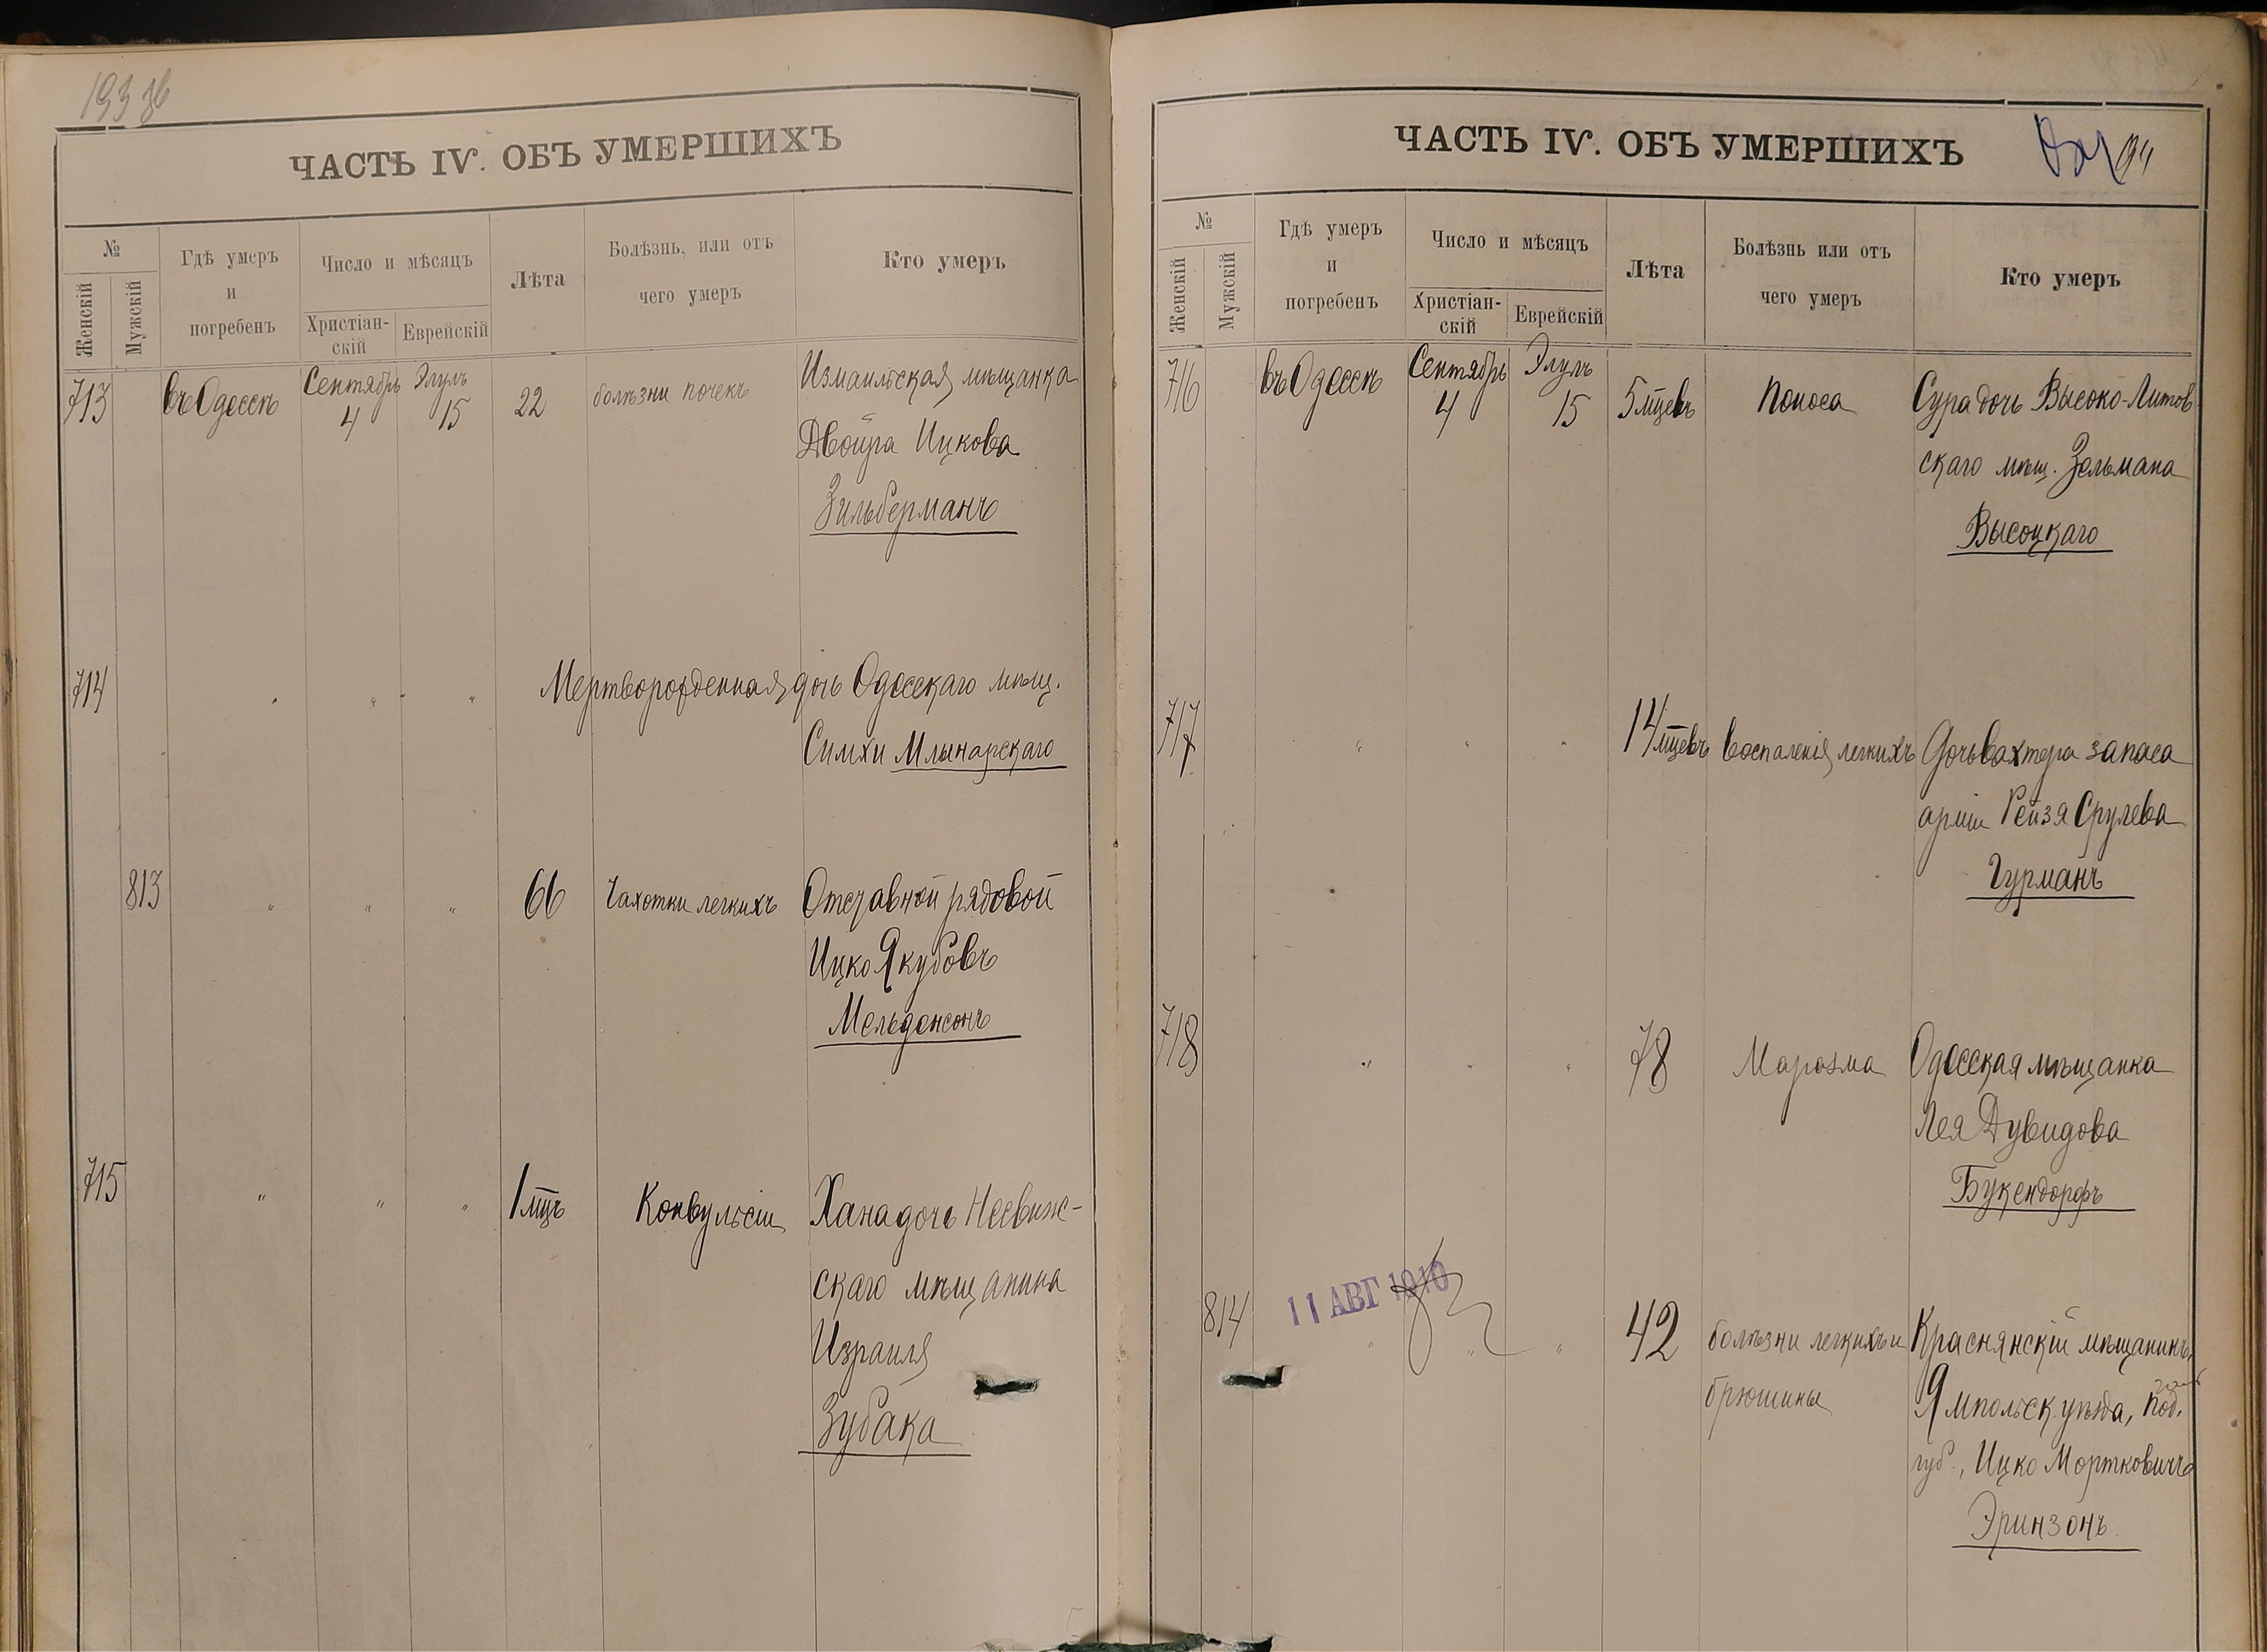 193 зв
ЧАСТЬ IV. ОБЪ УМЕРШИХЪ
№
Женскій
Мужскій
Гдѣ умеръ
и
погребенъ
Число и мѣсяцъ
Христіан-
скій
Еврейскій
Лѣта
Болѣзнь, или отъ
чего умеръ
Кто умеръ
713 въ Одессѣ Сентябрь 4 Элулъ 15 22 болѣзни почекъ Измаильская мѣщанка
Двойра Ицкова
Зильберманъ
714 " " " Мертворожденная дочь Одесскаго мѣщ.
Симхи Млынарскаго
813 " " " 66 Чахотки легкихъ Отставной рядовой
Ицко Якубовъ
Мельденсонъ
715 " " " 1 мцъ Конвульсіи Хана дочь Несвиж-
скаго мѣщанина
Израиля
Зубака
ЧАСТЬ IV. ОБЪ УМЕРШИХЪ
94
№
Женскій
Мужскій
Гдѣ умеръ
и
погребенъ
Число и мѣсяцъ
Христіан-
скій
Еврейскій
Лѣта
Болѣзнь или отъ
чего умеръ
Кто умеръ
716 въ Одессѣ Сентябрь 4 Элулъ 15 5 мцевъ Поноса Сура дочь Высоко-Литов
скаго мѣщ. Зельмана
Высоцкаго
717 " " " 14 мцевъ Воспаленія легкихъ Дочь вахтера запаса
арміи Рейзя Срулева
Гурманъ
718 " " " 78 Маразма Одесская мѣщанка
Лея Дувидова
Букендорфъ
11 АВГ 1910
814 " " " 42 болѣзни легкихъ и Краснянскій мѣщанинъ,
брюшины Ямпольск. уѣзда, Под.
губ., Ицко Мортковичъ
Эринзонъ